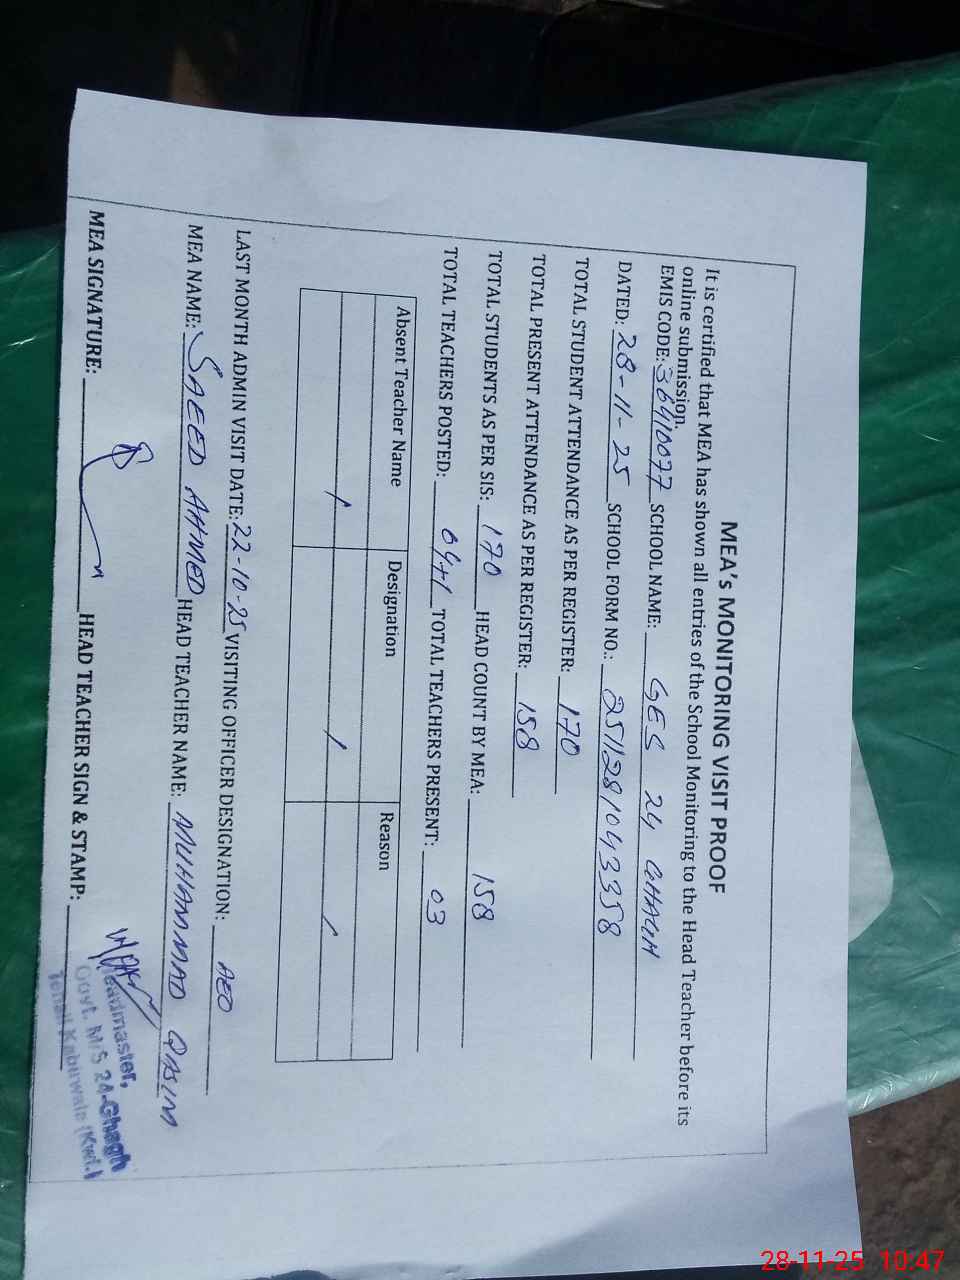 MEA's MONITORING VISIT PROOF
It is certified that MEA has shown all entries of the School Monitoring to the Head Teacher before its
online submission.
EMIS CODE: 36410077 SCHOOL NAME: GES 24 GHAGH
DATED: 28-11-25 SCHOOL FORM NO.: 2511281043358
TOTAL STUDENT ATTENDANCE AS PER REGISTER: 170
TOTAL PRESENT ATTENDANCE AS PER REGISTER: 158
TOTAL STUDENTS AS PER SIS: 170 HEAD COUNT BY MEA: 158
TOTAL TEACHERS POSTED: 04+1 TOTAL TEACHERS PRESENT: 03
Absent Teacher Name Designation Reason
/ / /
LAST MONTH ADMIN VISIT DATE: 22-10-25 VISITING OFFICER DESIGNATION: AEO
MEA NAME: SAEED AHMED HEAD TEACHER NAME: MUHAMMAD QASIM
MEA SIGNATURE: HEAD TEACHER SIGN & STAMP:
Headmaster,
Govt. M/S 24-Ghagh
Tehsil Kabirwala (Kwl.)
28-11-25 10:47